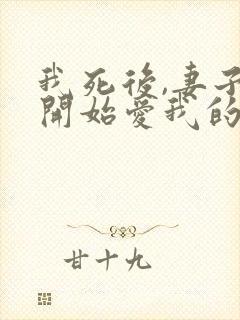 我死後,妻子
開始愛我的
廿十九